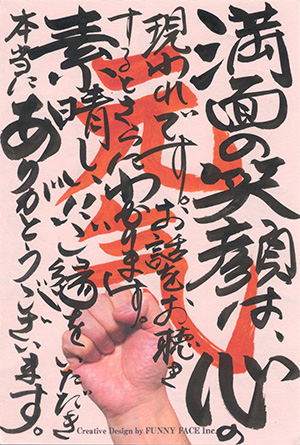 満面の笑顔は、心の
現われです。お話をお聴き
するとさらにわかります。
素晴しいご縁をいただき
本当にありがとうございます。
元気
Creative Design by FUNNY FACE Inc.